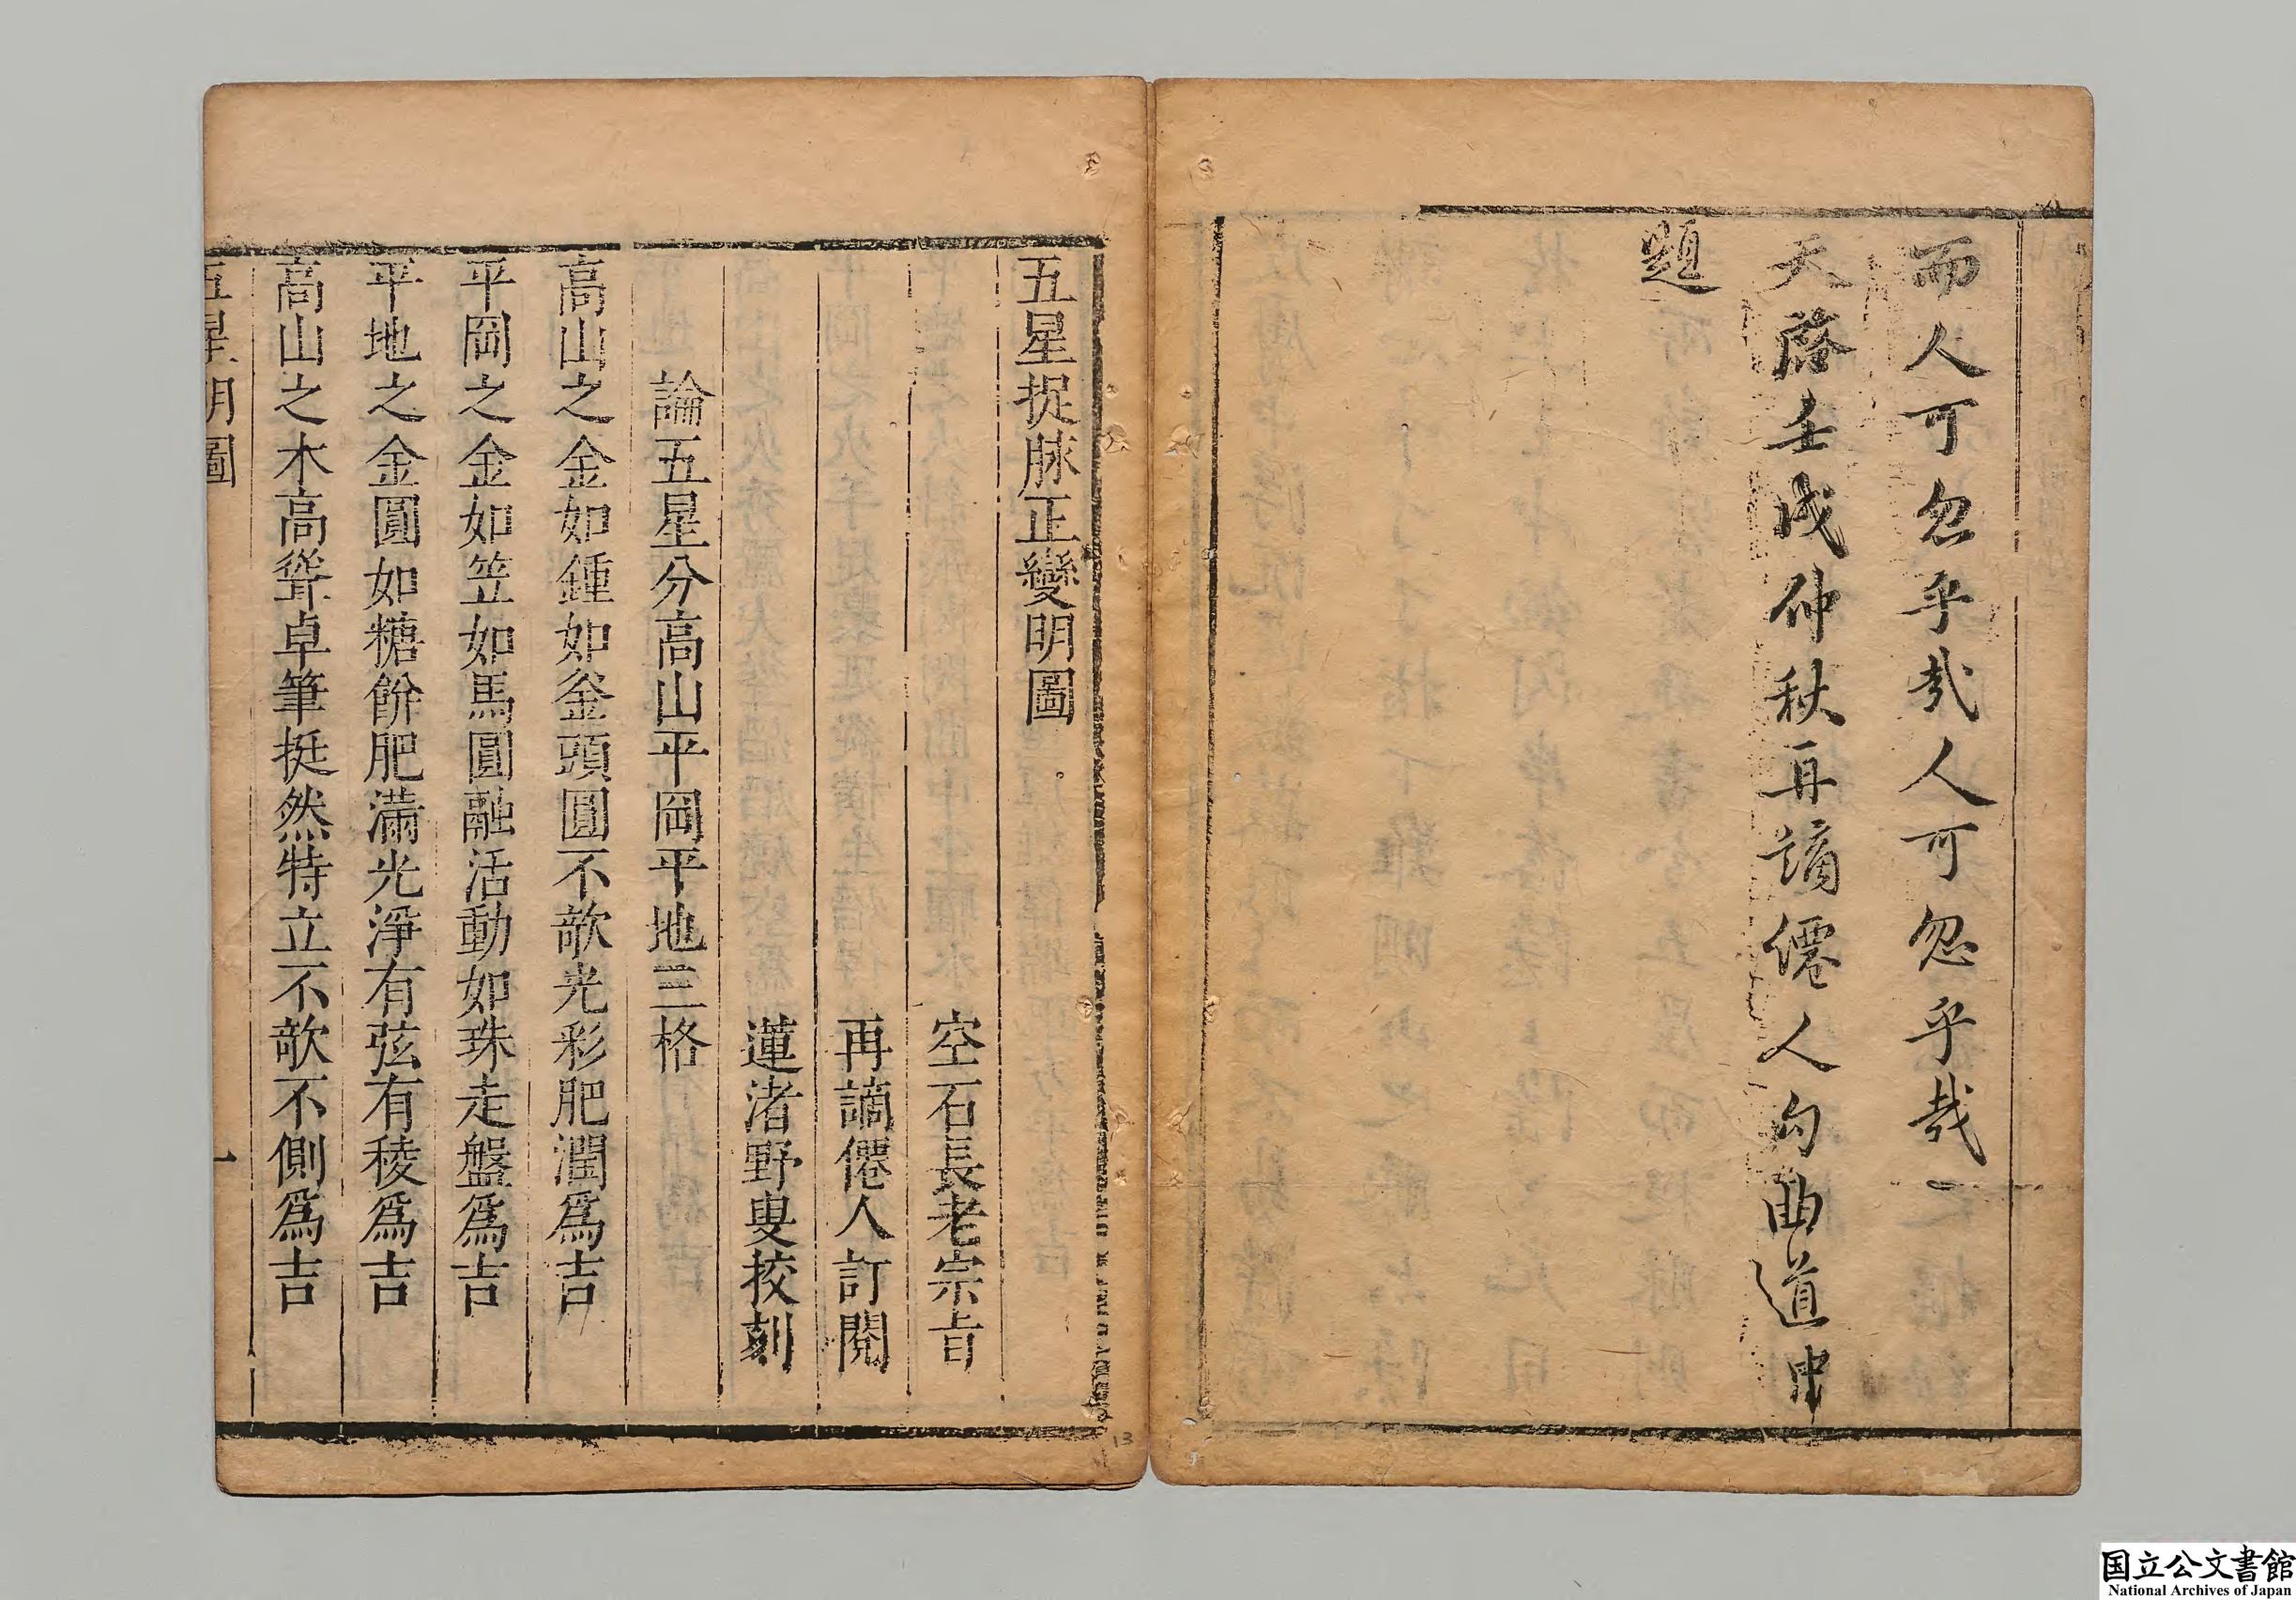 而人可忽乎哉人可忽乎哉
天啓壬戌仲秋再謫僊人勾曲道中
題
五星捉脉正變明圖
空石長老宗旨
再謫僊人訂閱
蓮渚野叟挍刻
論五星分高山平岡平地三格
高山之金如鍾如釜頭圓不欹光彩肥潤爲吉
平岡之金如笠如馬圓融活動如珠走盤爲吉
平地之金圓如糖餅肥滿光淨有弦有稜爲吉
高山之木高聳卓筆挺然特立不欹不側爲吉
五星明圖
一
13
国立公文書館
National Archives of Japan